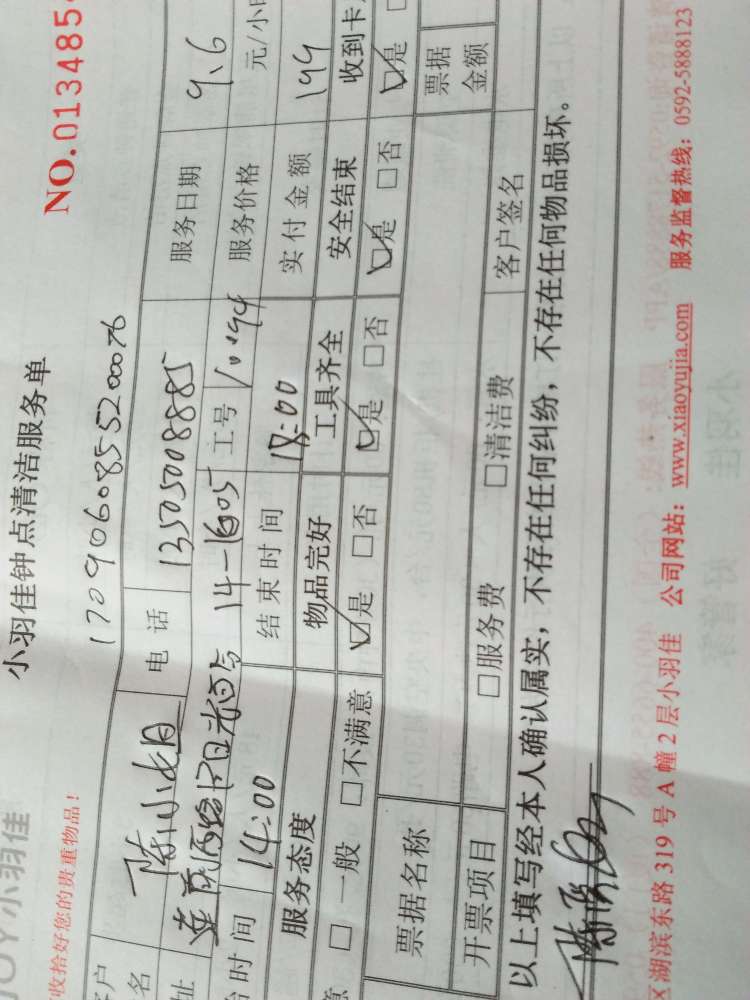 JOY小羽佳
小羽佳钟点清洁服务单
收拾好您的贵重物品！
NO.0134854
1709060855200076
户名 陈小姐 电话 13505008885 服务日期 9.6
址 14-1605 工号 服务价格 元/小时
时间 14:00 结束时间 18:00 实付金额 144
服务态度 物品完好 工具齐全 安全结束 收到卡
意 □一般 □不满意 ☑是 □否 ☑是 □否 ☑是 □否 ☑是
票据名称 票据金额
开票项目 □服务费 □清洁费 客户签名
以上填写经本人确认属实，不存在任何纠纷，不存在任何物品损坏。
区湖滨东路 319 号 A 幢 2 层小羽佳 公司网站：www.xiaoyujia.com 服务监督热线：0592-5888123